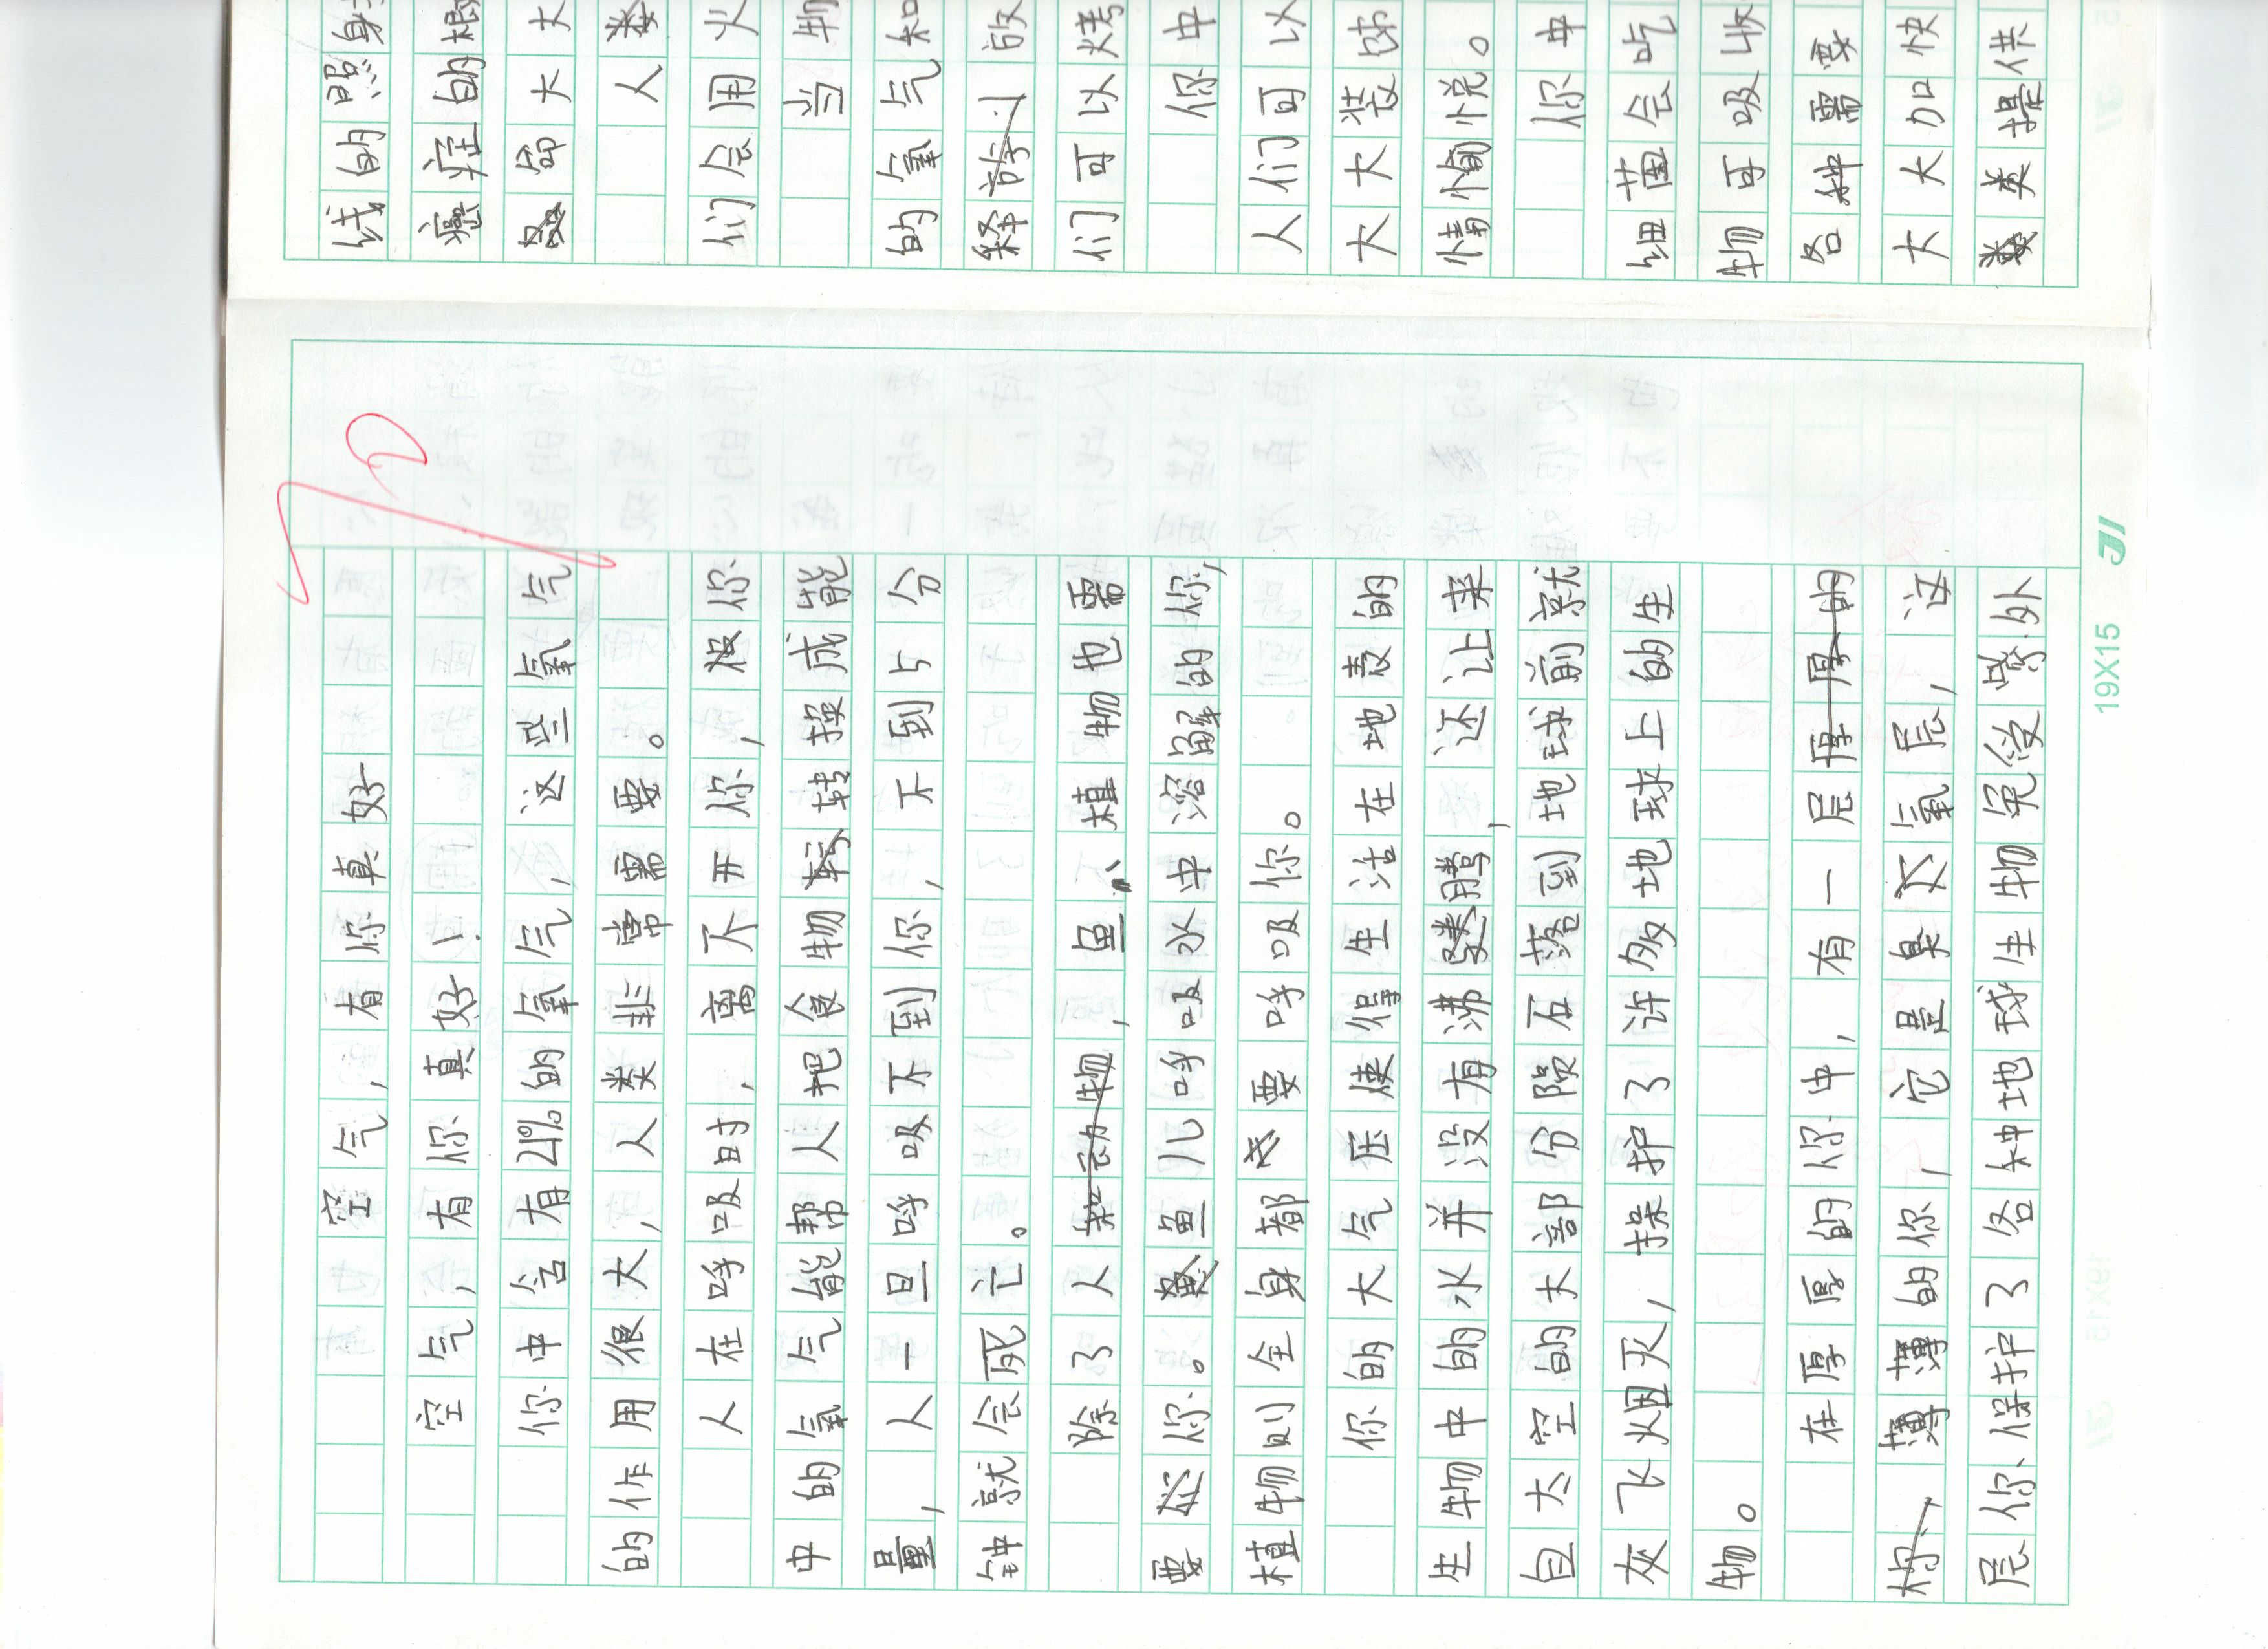 空气，有你真好
空气，有你真好！
你中含有21%的氧气，这些氧气
的作用很大，人类非常需要。
人在呼吸时，离不开你，没你
中的氧气能帮人把食物转换成能
量，人一旦呼吸不到你，不到5分
钟就会死亡。
除了人，鱼、植物也需
要你。鱼儿呼吸水中溶解的你，
植物则全身都要呼吸你。
你的大气压使得生活在地表的
生物中的水并没有沸腾，还让来
自太空的大部分陨石落到地球前就
灰飞烟灭，保护了许多地球上的生
物。
在厚厚的你中，有一层
薄薄的你，它是臭氧层，这
层你保护了各种地球生物免受紫外
19X15
线的照射
癌症的根
命大大
人类
们会用火
当物
的氧气和
释放
们可以烤
你中
人们可以
大大装饰
情愉悦。
你中
细菌会吃
物可吸收
各种需要
大大加快
类提供